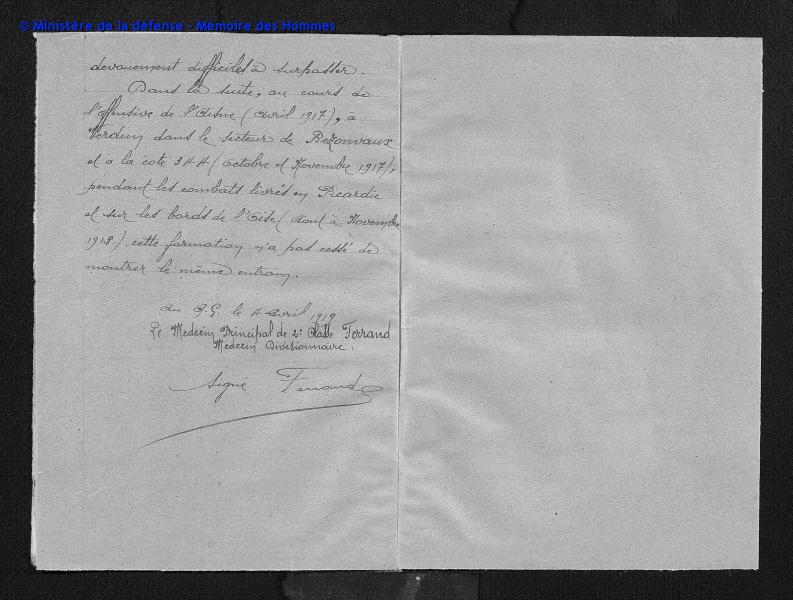 © Ministère de la défense - Mémoire des Hommes
devouement difficiles à surpasser.
Dans la suite, au cours de
l'offensive de l'Aisne (Avril 1917), à
Verdun dans le secteur de Bezonvaux
et à la cote 344 (Octobre et Novembre 1917),
pendant les combats livrés en Picardie
et sur les bords de l'Oise (Août à Novembre
1918), cette formation n'a pas cessé de
montrer le même entrain.
au Q.G. le 4 Avril 1919
Le Medecin Principal de 2e Classe Ferrand
Medecin Divisionnaire :
Signé Ferrand